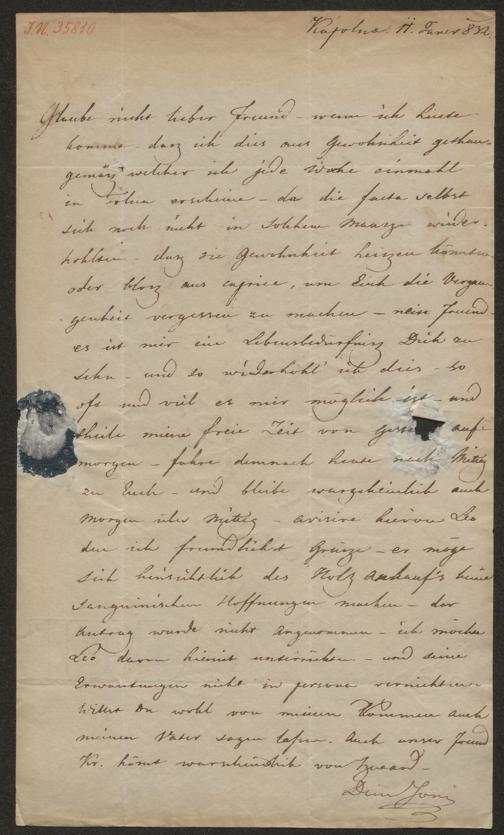 I.N. 35810
Kápolna 11. Janer 832.
Glaube nicht lieber Freund – wenn ich heute
komme – daz ich dies aus Gewohnheit gethan –
gemäß welcher ich jede Woche einmahl
in erscheine – da die facta selbst
sich noch nicht in solchem Maaze wieder-
hohlten – daz sie Gewohnheit heizen könnten
oder bloz aus caprice, um Euch die Vergan-
genheit vergessen zu machen – nein Freund –
es ist mir ein Lebensbedürfniz Dich zu
sehn – und so wiederhohl' ich dies – so
oft und viel es mir möglich ist – und
theile meine freie Zeit von auf
morgen – fahre demnach heute nach Mittag
zu Euch – und bleibe warscheinlich auch
morgen über Mittag – avisire hievon Leo
den ich freundlichst Grüze – er möge
sich hinsichtlich des Holz Ankauf's keine
sanguinischen Hoffnungen machen – der
Antrag wurde nicht angenommen – ich möchte
Leo davon hiemit unterrichten – und seine
Erwartungen nicht in persona vernichten.
Willst Du wohl von meinem Kommen auch
meinen Vater sagen lassen. Auch unser Freund
Kr. kömt warscheinlich von
Dein